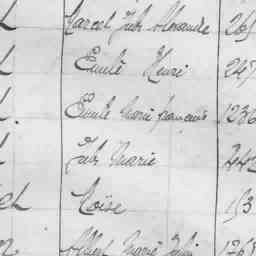 Marcel Jules Alexandre 265
Emile Henri 247
Emile Marie François 1236
Jules Marie 442
Moïse 153
Albert Marie Jules 1768